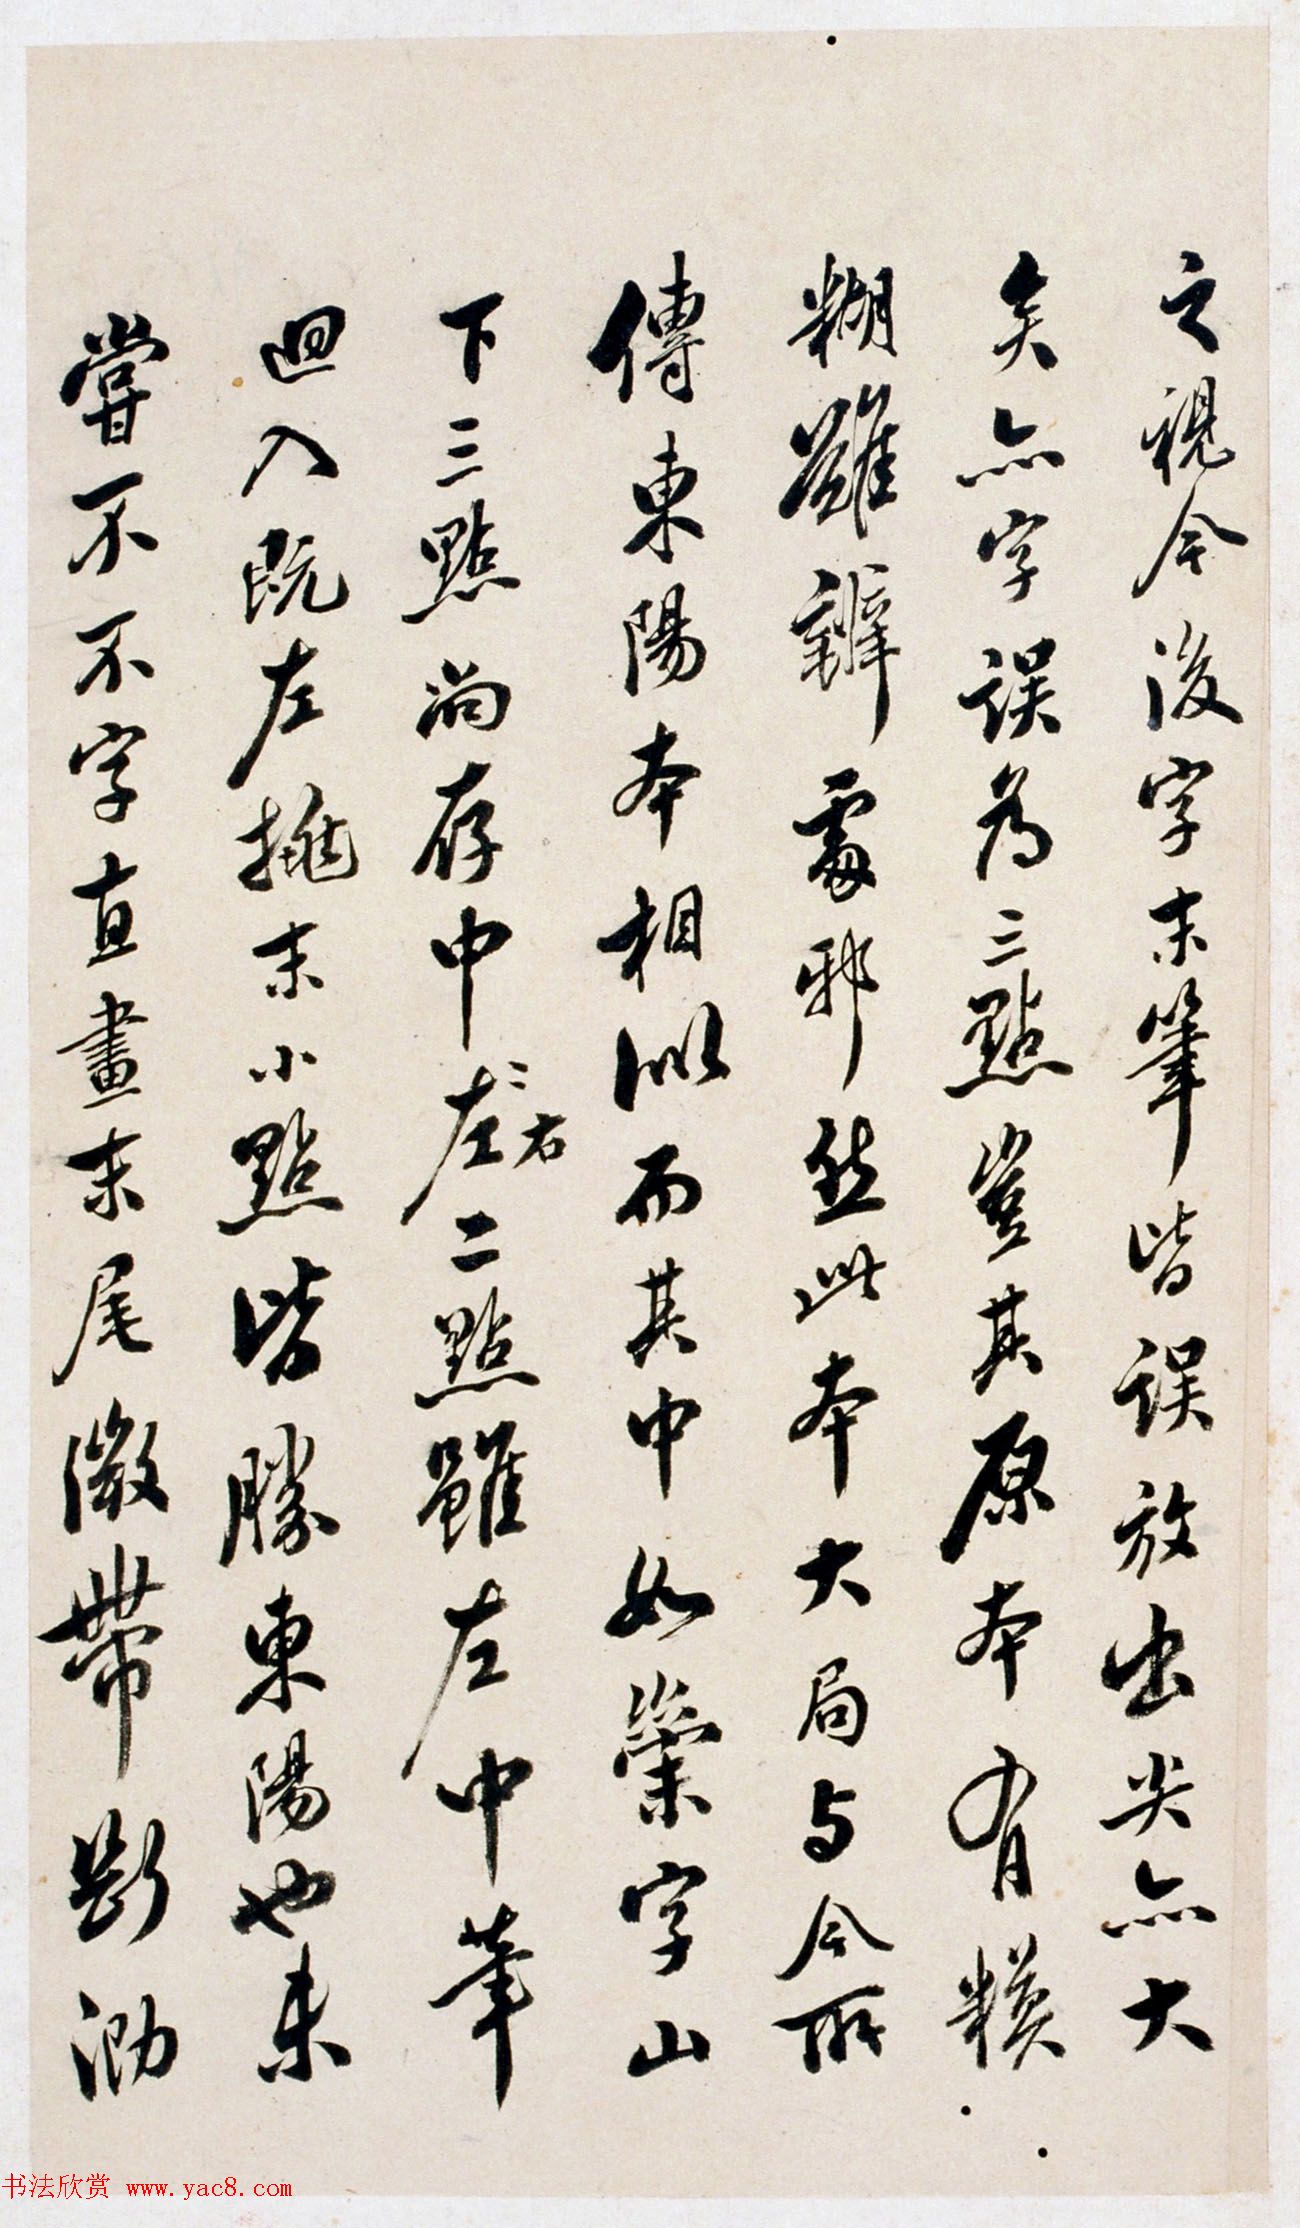 之視今後字末筆皆誤放出尖亦大
矣亦字誤為三點豈其原本有模
糊難辨處邪然此本大局与今所
傳東陽本相似而其中如崇字山
下三點尚存中左二點雖左中筆
三右
迴入既左挑末小點皆勝東陽也未
嘗不不字直畫末尾微帶斷泐
书法欣赏 www.yac8.com